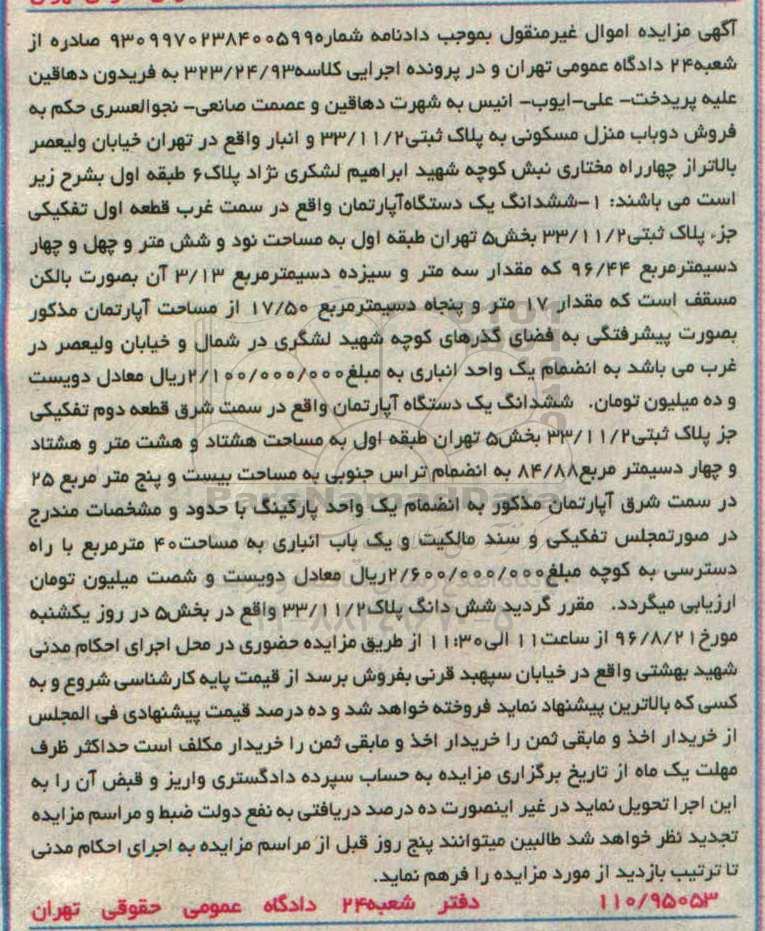 آگهی مزایده اموال غیرمنقول بموجب دادنامه شماره۹۳۰۹۹۷۰۲۳۸۴۰۰۵۹۹ صادره از
شعبه۲۴ دادگاه عمومی تهران و در پرونده اجرایی کلاسه۳۲۳/۲۴/۹۳ به فریدون دهاقین
علیه پریدخت- علی-ایوب- انیس به شهرت دهاقین و عصمت صانعی- نجوالعسری حکم به
فروش دوباب منزل مسکونی به پلاک ثبتی۳۳/۱۱/۲ و انبار واقع در تهران خیابان ولیعصر
بالاتراز چهارراه مختاری نبش کوچه شهید ابراهیم لشکری نژاد پلاک۶ طبقه اول بشرح زیر
است می باشند: ۱-ششدانگ یک دستگاه‌آپارتمان واقع در سمت غرب قطعه اول تفکیکی
جزء پلاک ثبتی۳۳/۱۱/۲ بخش۵ تهران طبقه اول به مساحت نود و شش متر و چهل و چهار
دسیمترمربع ۹۶/۴۴ که مقدار سه متر و سیزده دسیمترمربع ۳/۱۳ آن بصورت بالکن
مسقف است که مقدار ۱۷ متر و پنجاه دسیمترمربع ۱۷/۵۰ از مساحت آپارتمان مذکور
بصورت پیشرفتگی به فضای گذرهای کوچه شهید لشگری در شمال و خیابان ولیعصر در
غرب می باشد به انضمام یک واحد انباری به مبلغ۲/۱۰۰/۰۰۰/۰۰۰ریال معادل دویست
و ده میلیون تومان. ششدانگ یک دستگاه آپارتمان واقع در سمت شرق قطعه دوم تفکیکی
جز پلاک ثبتی۳۳/۱۱/۲ بخش۵ تهران طبقه اول به مساحت هشتاد و هشت متر و هشتاد
و چهار دسیمتر مربع۸۴/۸۸ به انضمام تراس جنوبی به مساحت بیست و پنج متر مربع ۲۵
در سمت شرق آپارتمان مذکور به انضمام یک واحد پارکینگ با حدود و مشخصات مندرج
در صورتمجلس تفکیکی و سند مالکیت و یک باب انباری به مساحت۴۰ مترمربع با راه
دسترسی به کوچه مبلغ۲/۶۰۰/۰۰۰/۰۰۰ریال معادل دویست و شصت میلیون تومان
ارزیابی میگردد. مقرر گردید شش دانگ پلاک۳۳/۱۱/۲ واقع در بخش۵ در روز یکشنبه
مورخ۹۶/۸/۲۱ از ساعت۱۱ الی۱۱:۳۰ از طریق مزایده حضوری در محل اجرای احکام مدنی
شهید بهشتی واقع در خیابان سپهبد قرنی بفروش برسد از قیمت پایه کارشناسی شروع و به
کسی که بالاترین پیشنهاد نماید فروخته خواهد شد و ده درصد قیمت پیشنهادی فی المجلس
از خریدار اخذ و مابقی ثمن را خریدار اخذ و مابقی ثمن را خریدار مکلف است حداکثر ظرف
مهلت یک ماه از تاریخ برگزاری مزایده به حساب سپرده دادگستری واریز و قبض آن را به
این اجرا تحویل نماید در غیر اینصورت ده درصد دریافتی به نفع دولت ضبط و مراسم مزایده
تجدید نظر خواهد شد طالبین میتوانند پنج روز قبل از مراسم مزایده به اجرای احکام مدنی
تا ترتیب بازدید از مورد مزایده را فرهم نماید.
۱۱۰/۹۵۰۵۳ دفتر شعبه۲۴ دادگاه عمومی حقوقی تهران
ParsNamadData